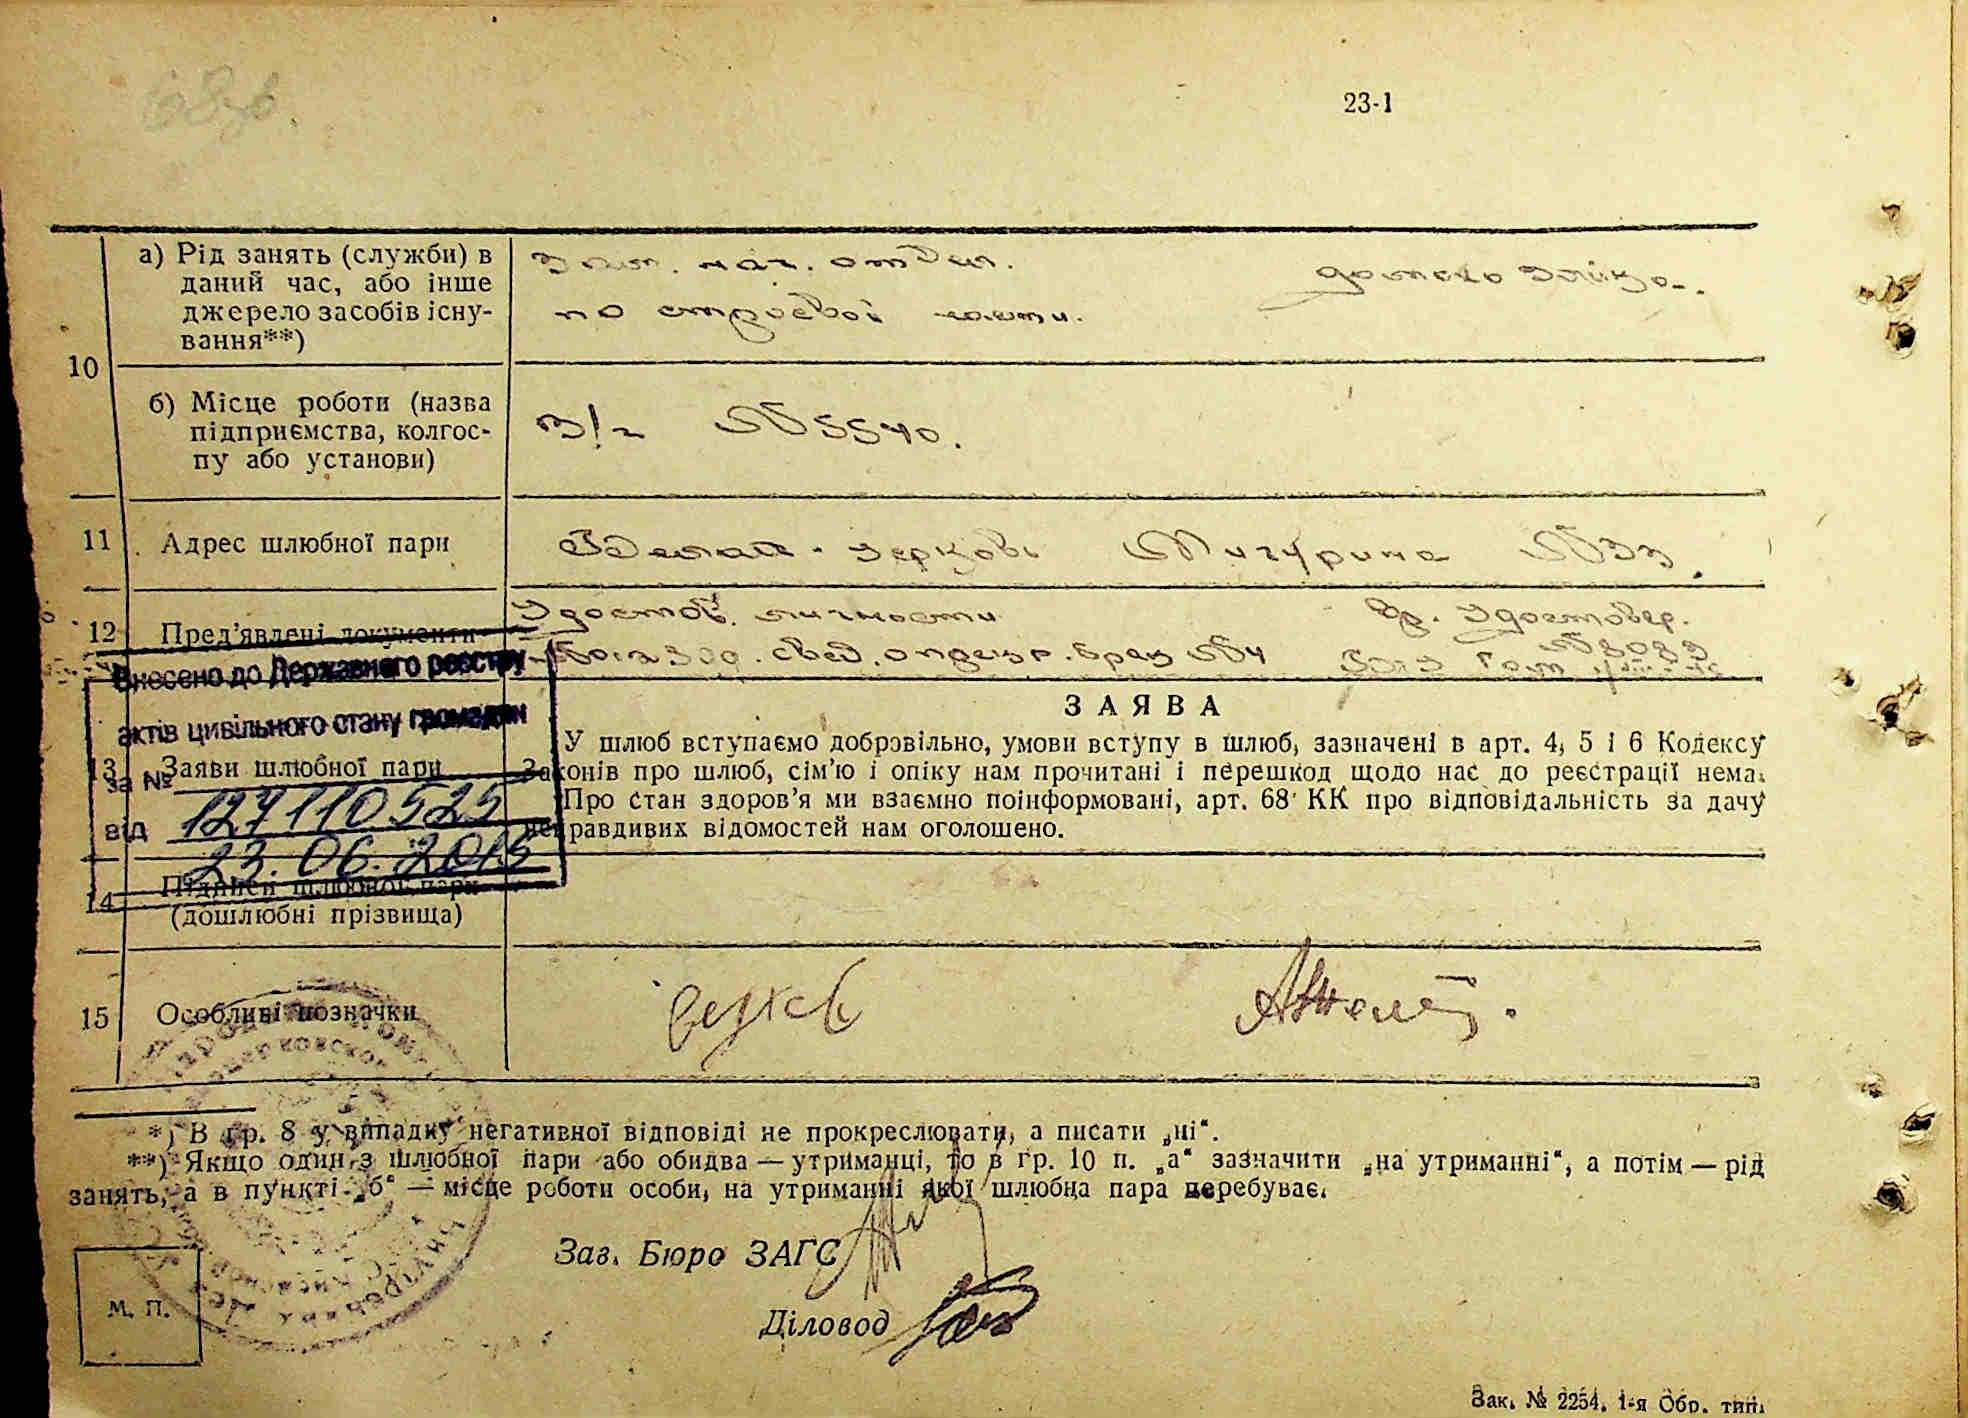 23-1
10
а) Рід занять (служби) в
даний час, або інше
джерело засобів існу-
вання**)
Зам. нач. отдел.
по строевой части.
домохозяйка.
б) Місце роботи (назва
підприємства, колгос-
пу або установи)
в/ч № 5540.
11 Адрес шлюбної пари
Белая-Церковь Мичурина № 33.
12 Пред’явлені документи
Удостов. личности
Вр. Удостовер.
свед. о брак №
Внесено до Державного реєстру
актів цивільного стану громадян
за №
127110525
від
23.06.2015
13 Заяви шлюбної пари
ЗАЯВА
У шлюб вступаємо добровільно, умови вступу в шлюб, зазначені в арт. 4, 5 і 6 Кодексу
Законів про шлюб, сім’ю і опіку нам прочитані і перешкод щодо нас до реєстрації нема.
Про стан здоров’я ми взаємно поінформовані, арт. 68 КК про відповідальність за дачу
неправдивих відомостей нам оголошено.
14 Підписи шлюбної пари
(дошлюбні прізвища)
15 Особливі позначки
*) В гр. 8 у випадку негативної відповіді не прокреслювати, а писати „ні“.
**) Якщо один з шлюбної пари або обидва — утриманці, то в гр. 10 п. „а“ зазначити „на утриманні“, а потім — рід
занять, а в пункті „б“ — місце роботи особи, на утриманні якої шлюбна пара перебуває.
Зав. Бюро ЗАГС
Діловод
М. П.
Зак. № 2254. 1-я Обр. тип.